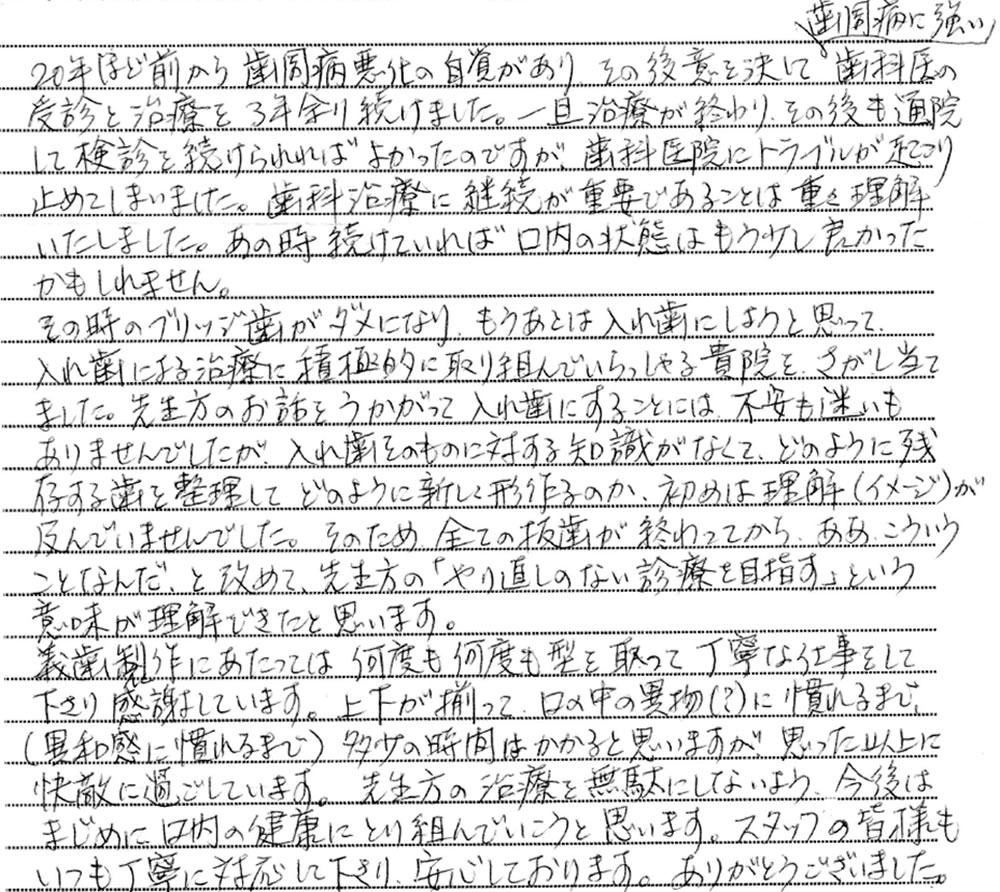 歯周病に強い
20年ほど前から歯周病悪化の自覚があり、その後意を決して歯科医の
受診と治療を3年余り続けました。一旦治療が終わり、その後も通院
して検診を続けられればよかったのですが、歯科医院にトラブルが起こり
止めてしまいました。歯科治療に継続が重要であることは重々理解
いたしました。あの時続けていれば口内の状態はもう少し良かった
かもしれません。
その時のブリッジ歯がダメになり、もうあとは入れ歯にしようと思って、
入れ歯による治療に積極的に取り組んでいらっしゃる貴院を、さがし当て
ました。先生方のお話をうかがって入れ歯にすることには、不安も迷いも
ありませんでしたが、入れ歯そのものに対する知識がなくて、どのように残
存する歯を整理してどのように新しく形作るのか、初めは理解(イメージ)が
及んでいませんでした。そのため、全ての抜歯が終わってから、ああ、こういう
ことなんだ、と改めて、先生方の「やり直しのない診療を目指す」という
意味が理解できたと思います。
義歯制作にあたっては何度も何度も型を取って丁寧な仕事をして
下さり感謝しています。上下が揃って、口の中の異物(?)に慣れるまで、
(異和感に慣れるまで)多少の時間はかかると思いますが、思った以上に
快敵に過ごしています。先生方の治療を無駄にしないよう、今後は
まじめに口内の健康にとり組んでいこうと思います。スタッフの皆様も
いつも丁寧に対応して下さり、安心しております。ありがとうございました。